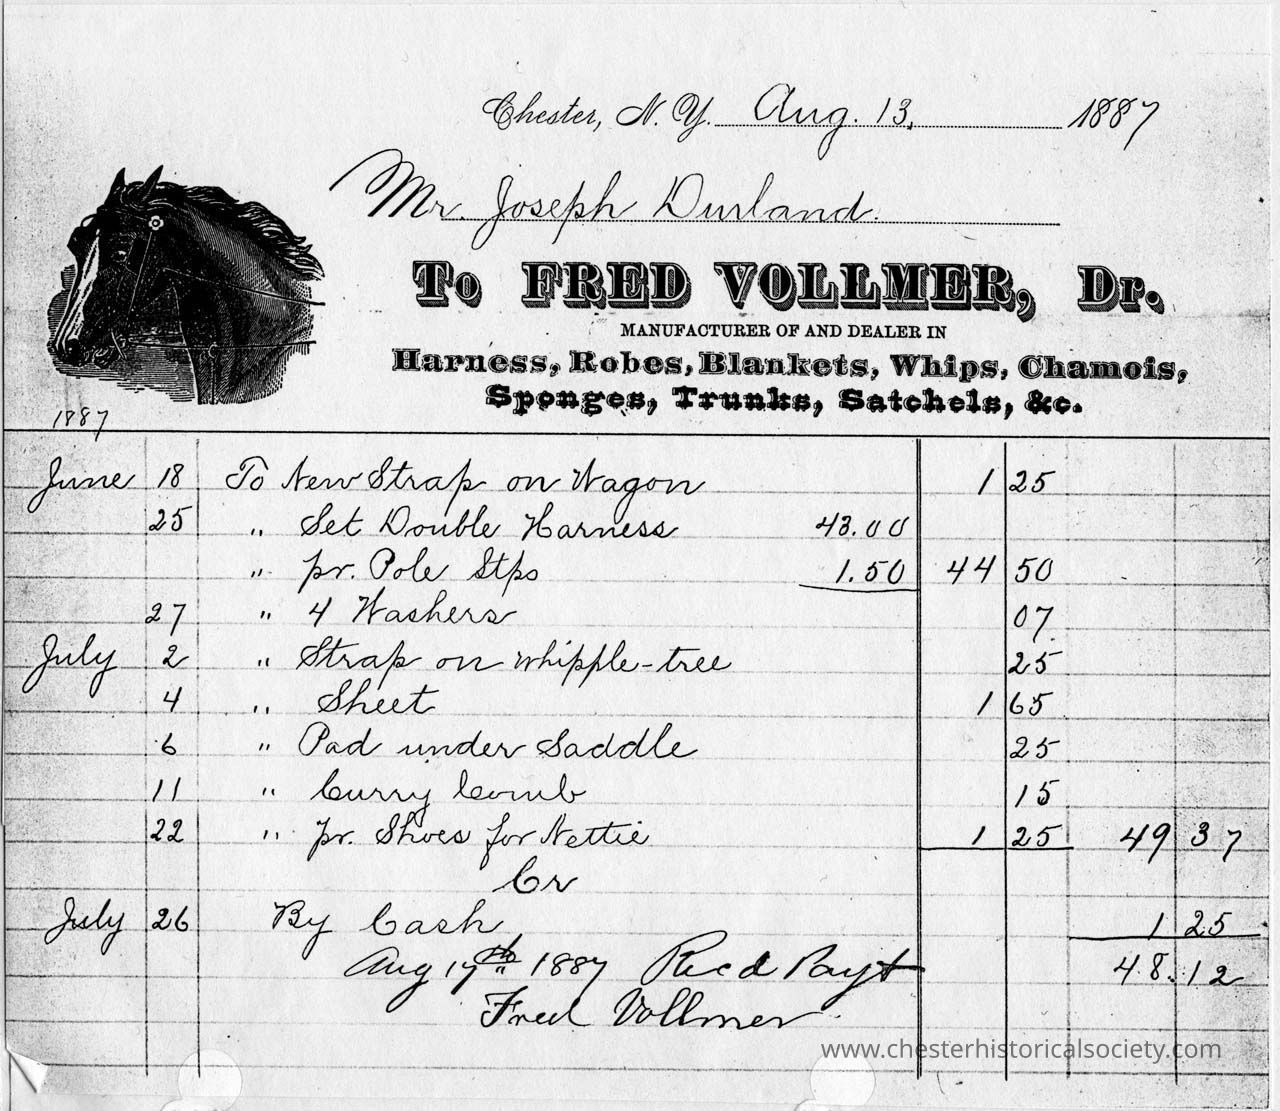 Chester, N. Y. Aug. 13, 1887
Mr. Joseph Durland.
To FRED VOLLMER, Dr.
MANUFACTURER OF AND DEALER IN
Harness, Robes, Blankets, Whips, Chamois,
Sponges, Trunks, Satchels, &c.
1887
June 18 To New Strap on Wagon 1 25
25 " Set Double Harness 43.00
" pr. Pole Stps 1.50 44 50
27 " 4 Washers 07
July 2 " Strap on whipple-tree 25
4 " Sheet 1 65
6 " Pad under Saddle 25
11 " Curry Comb 15
22 " pr. Shoes for Nettie 1 25 49 37
Cr
July 26 By Cash 1 25
Aug 17th 1887 Recd Payt 48.12
Fred Vollmer
www.chesterhistoricalsociety.com